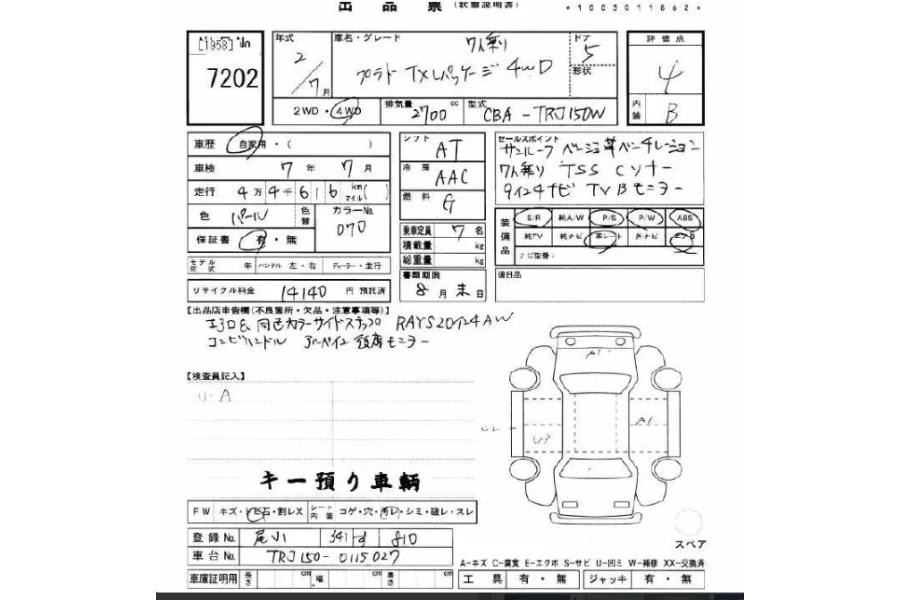 出品票 (状態説明書) *1003011662*
7202
年式 2/7月
車名・グレード 7人乗り プラド TXLパッケージ 4WD
ドア 5
形状
評価点 4
内装 B
2WD・4WD 排気量 2700 cc 型式 CBA-TRJ150W
車歴 自家用・( )
車検 7年 7月
走行 4万4千616 km マイル( )
色 パール 色替 カラーNo. 070
保証書 有・無
シフト AT
冷房 AAC
燃料 G
乗車定員 7名
積載量 kg
総重量 kg
セールスポイント
サンルーフ ベージュ革 ベンチレーション
7人乗り TSS Cソナー
9インチナビ TV Bモニター
装備品 S/R 純A/W P/S P/W ABS
純TV 純ナビ 革シート 外ナビ エアB
ナビ型番:
モデル年式 年 ハンドル 左・右 ディーラー・並行
リサイクル料金 14140 円 預託済
書類期限 8月末日
後日品
【出品店申告欄(不良箇所・欠品・注意事項等)】
エアロ& 同色カラーサイドステップ RAYS20インチAW
コンビハンドル 頭席モニター
【検査員記入】
小A
A1
U3
A1
キー預り車輌
FW キズ・トビ石・割レX シート内装 コゲ・穴・汚レ・シミ・破レ・スレ
登録No. 尾小 341 す 810
車台No. TRJ150-0115027
車庫証明用 長さ cm 幅 cm 高さ cm
スペア
A-キズ C-腐食 E-エクボ S-サビ U-凹ミ W-補修 XX-交換済
工具 有・無 ジャッキ 有・無